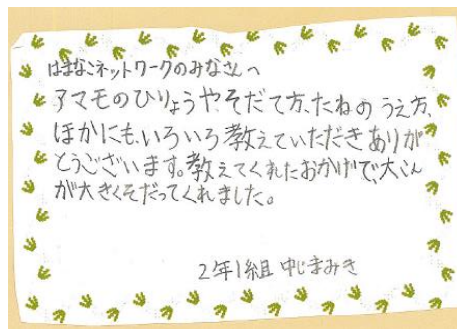 はまなこネットワークのみなさんへ
アマモのひりょうや、そだて方、たねのうえ方、
ほかにも、いろいろ教えていただきありが
とうございます。教えてくれたおかげで、大こん
が大きくそだってくれました。
2年1組 中じまみき